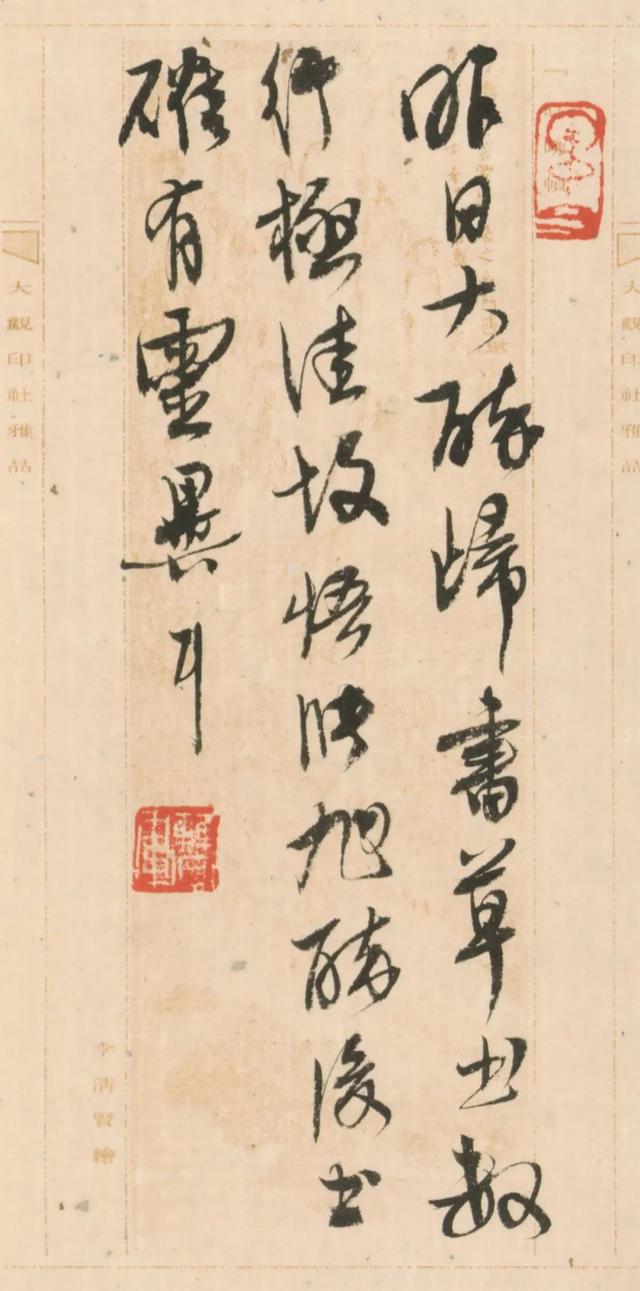 昨日大醉歸書草书數
行極佳故悟張旭醉後书
確有靈異耳
大觀印社雅品
大觀印社雅品
李清賢繪